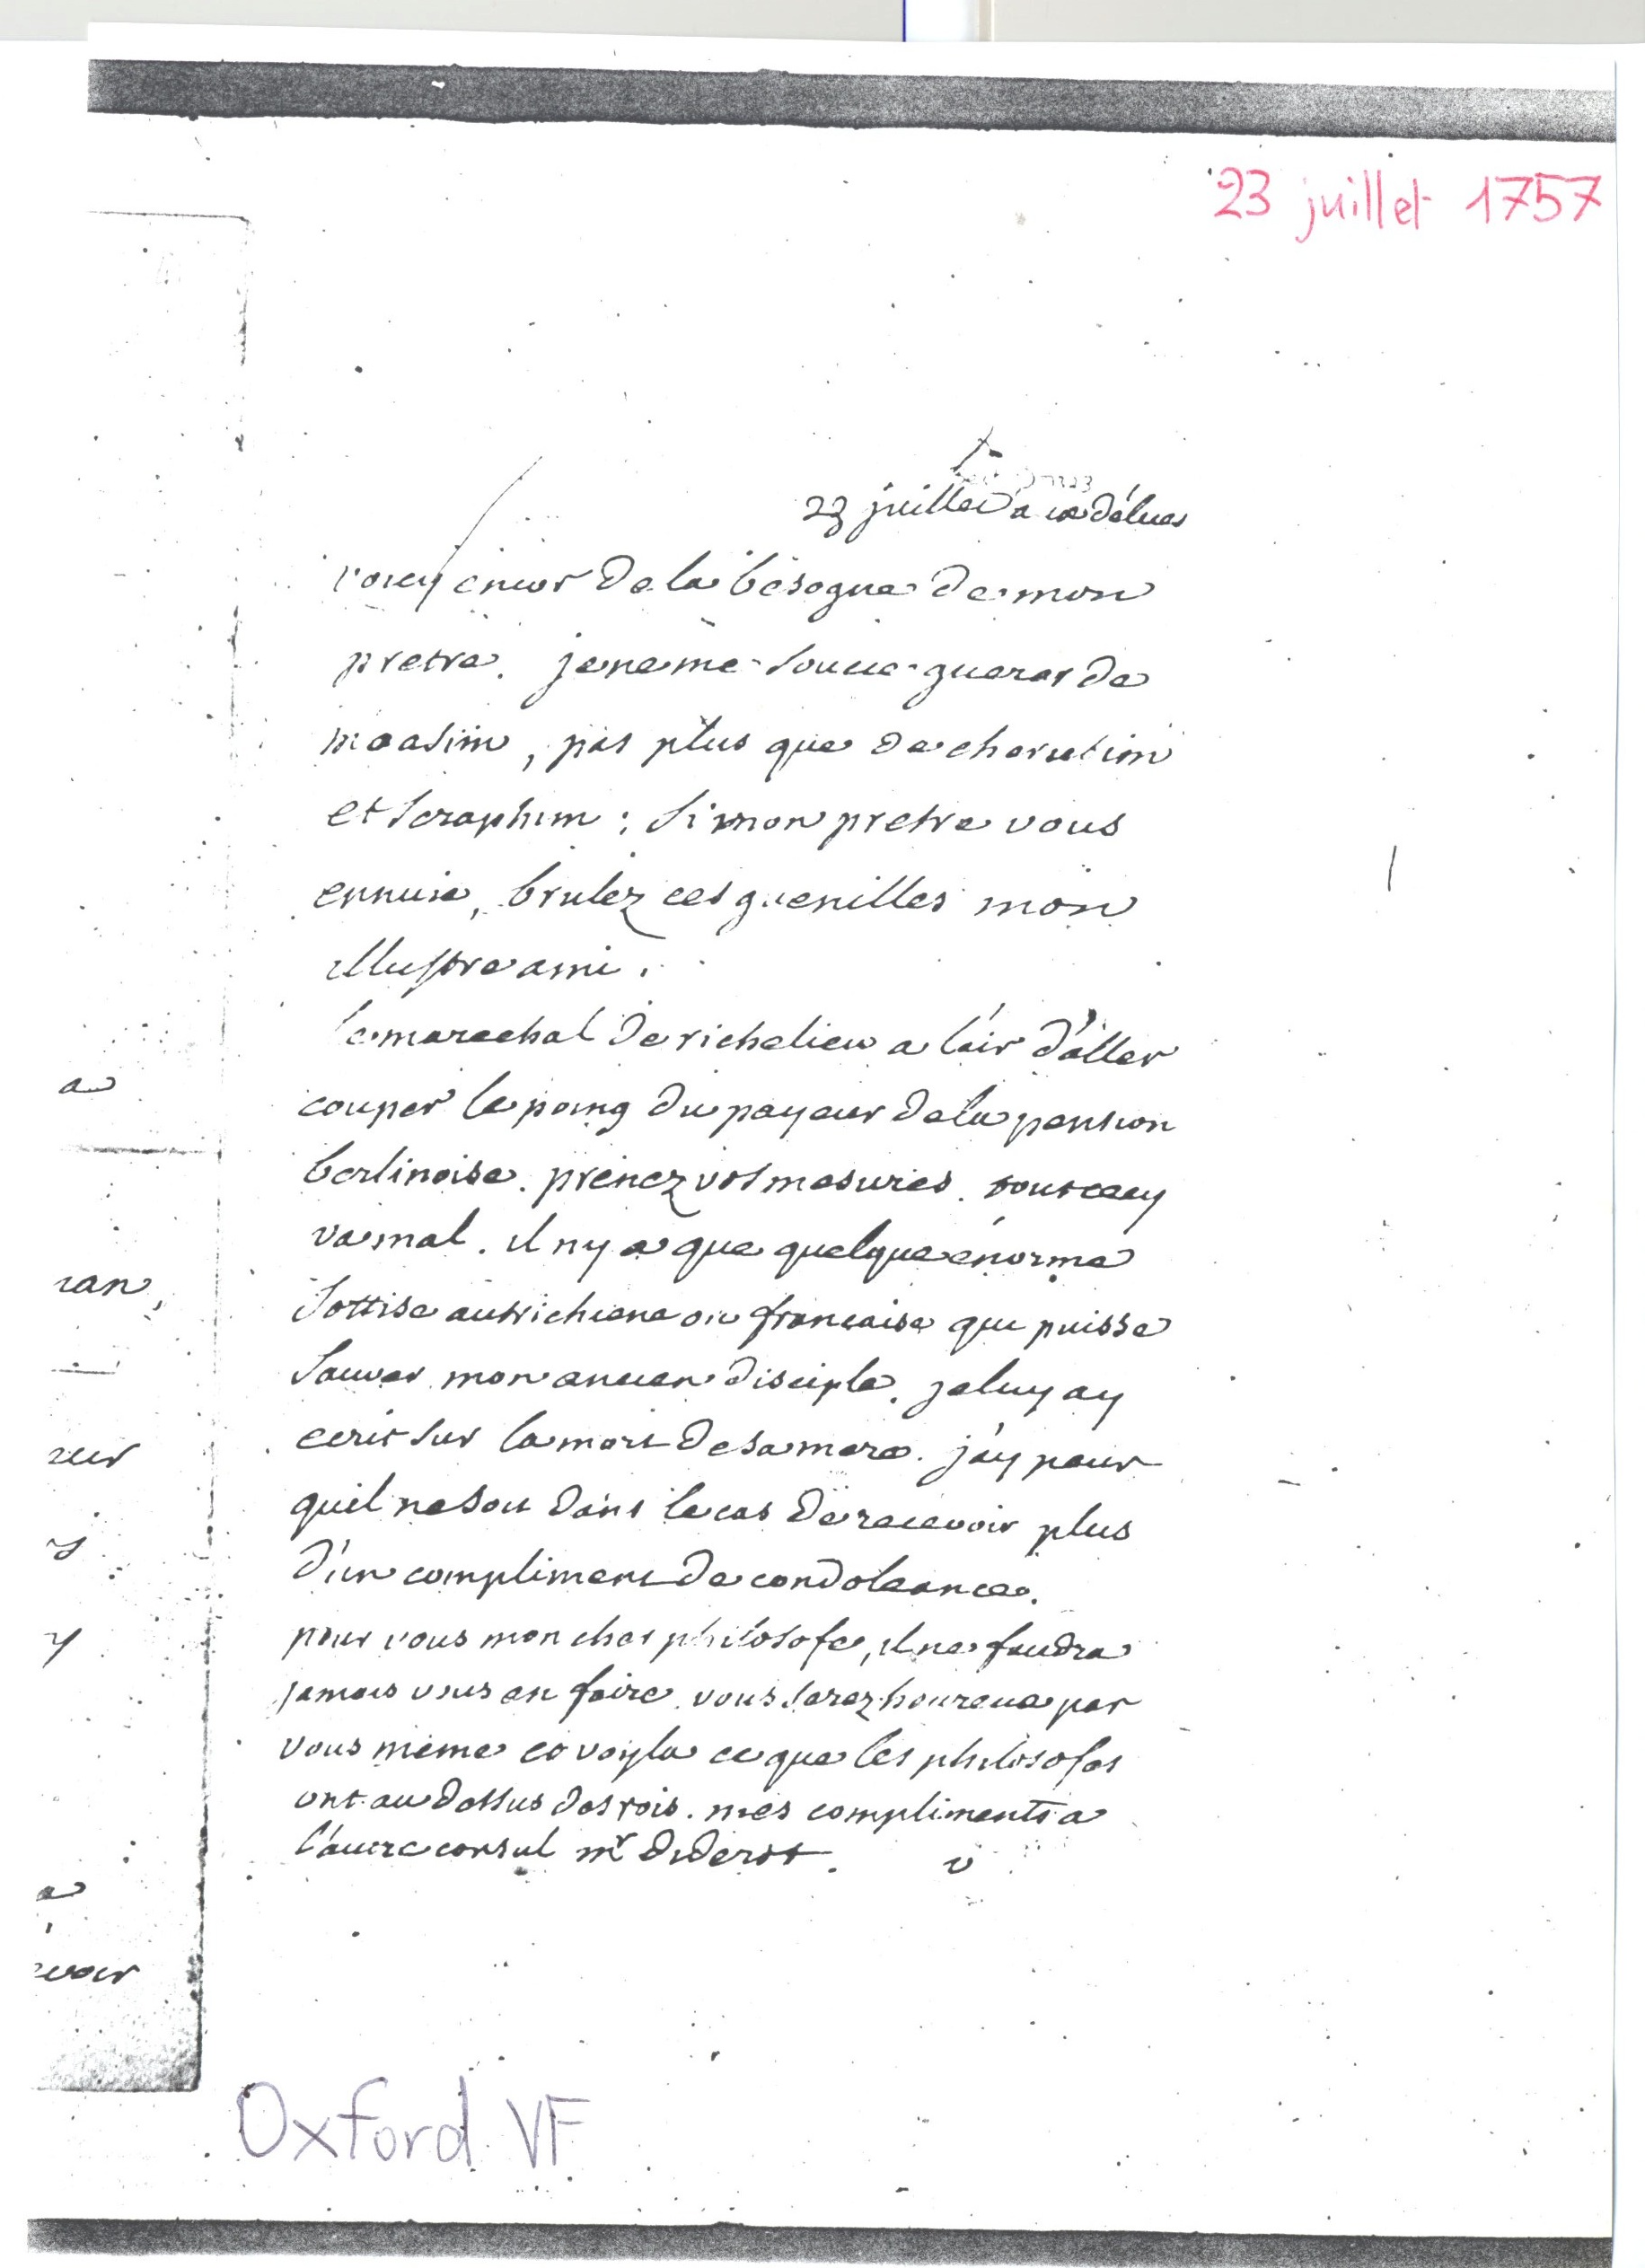 23 juillet 1757
23 juillet a ux délices
voicy encor de la besogne de mon
pretre. je ne me soucie gueres de
moasim, pas plus que de cherubim
et seraphim ; si mon pretre vous
ennuie, brulez ces guenilles mon
illustre ami.
le marechal de richelieu a l'air d'aller
couper le poing du payeur de la pension
berlinoise. prenez vos mesures. tout cecy
va mal. il ny a que quelque énorme
sottise autrichiene ou francaise qui puisse
sauver mon ancien disciple. je luy ay
ecrit sur la mort de sa mere. j'ay peur
quil ne soit dans le cas de recevoir plus
d'un compliment de condoleance.
pour vous mon cher philosofe, il ne faudra
jamais vous en faire. vous serez heureux par
vous meme et voyla ce que les philosofes
ont au dessus des rois. mes compliments a
l'autre consul mr diderot. v
a
ran,
reur
s
y
a
evoir
Oxford VF